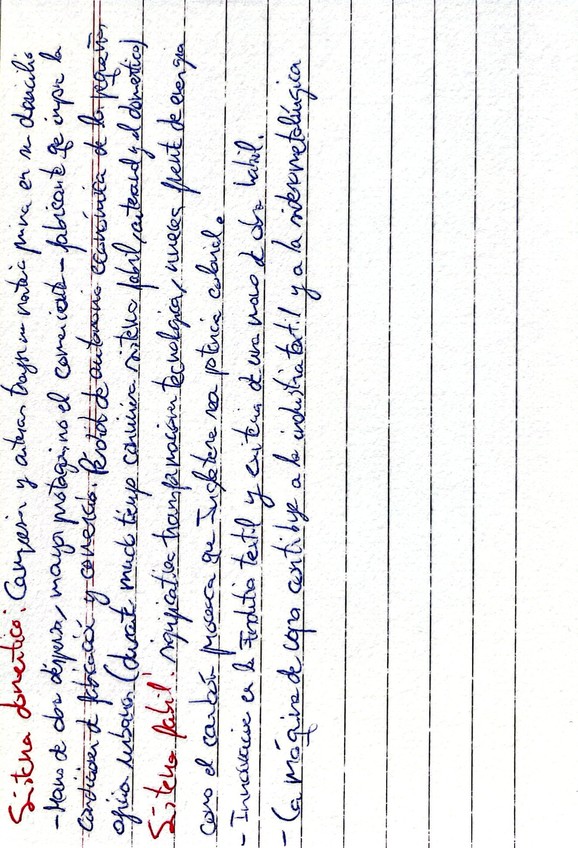 Sistema domestico: Campesin y artesan trajan su materia prima en su domicilio
- Mano de obra dispersa, mayor protagonismo el comerciante - fabricante que impon la
condiciones de fabricación y comercio. Perdida de autonomia económica de la pequeña
oficina urbana (durante mucho tiempo convivieron sistema fabril, artesanal y el domestico)
Sistema fabril: significativa transformación tecnológica, nuevas fuent de energia
como el carbón provoca que Inglaterra sea potencia colonial
- Innovaciones en la industria textil y existencia de una mano de obra habil.
- La máquina de vapor contribuye a la industria textil y a la siderometalúrgica